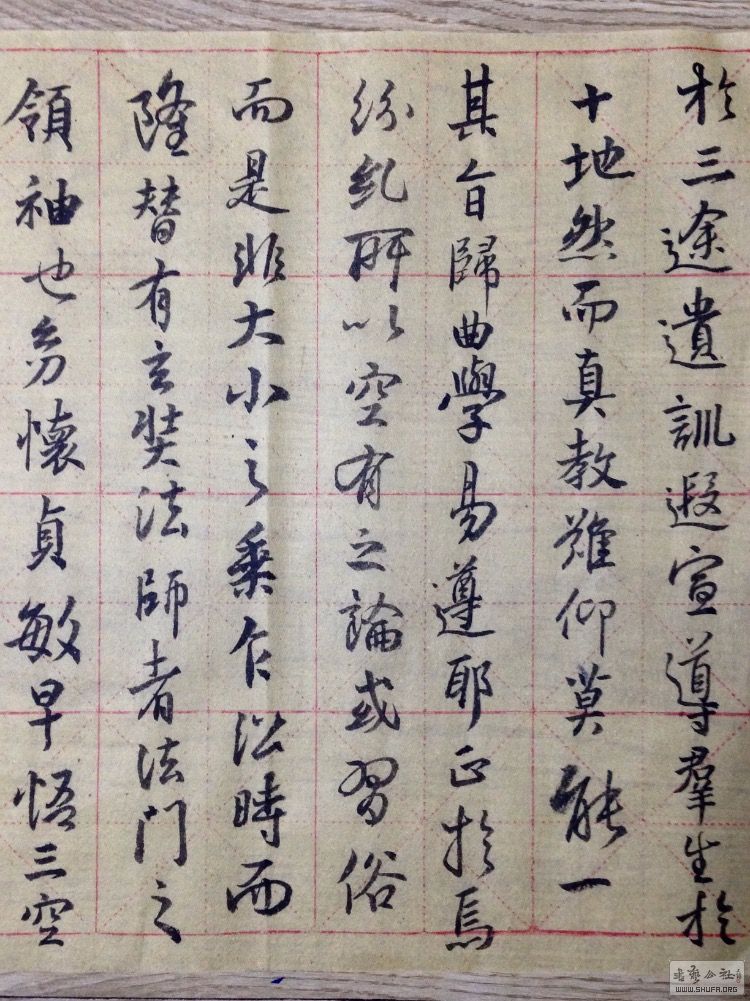 於三途遺訓遐宣導羣生於
十地然而真教難仰莫能一
其旨歸曲學易遵耶正於焉
紛糺所以空有之論或習俗
而是非大小之乘乍沿時而
隆替有玄奘法師者法門之
領袖也幼懷貞敏早悟三空
WWW.SHUFA.ORG